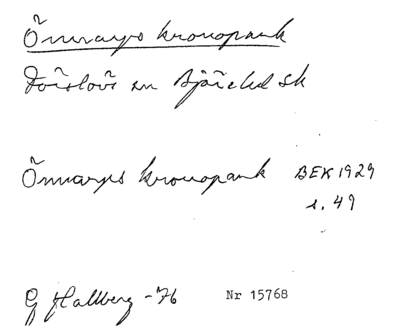 Önnarps kronopark
Förslövs sn Bjäre hd Sk
Önnarps kronopark BEK 1929
s. 49
G Hallberg -76 Nr 15768